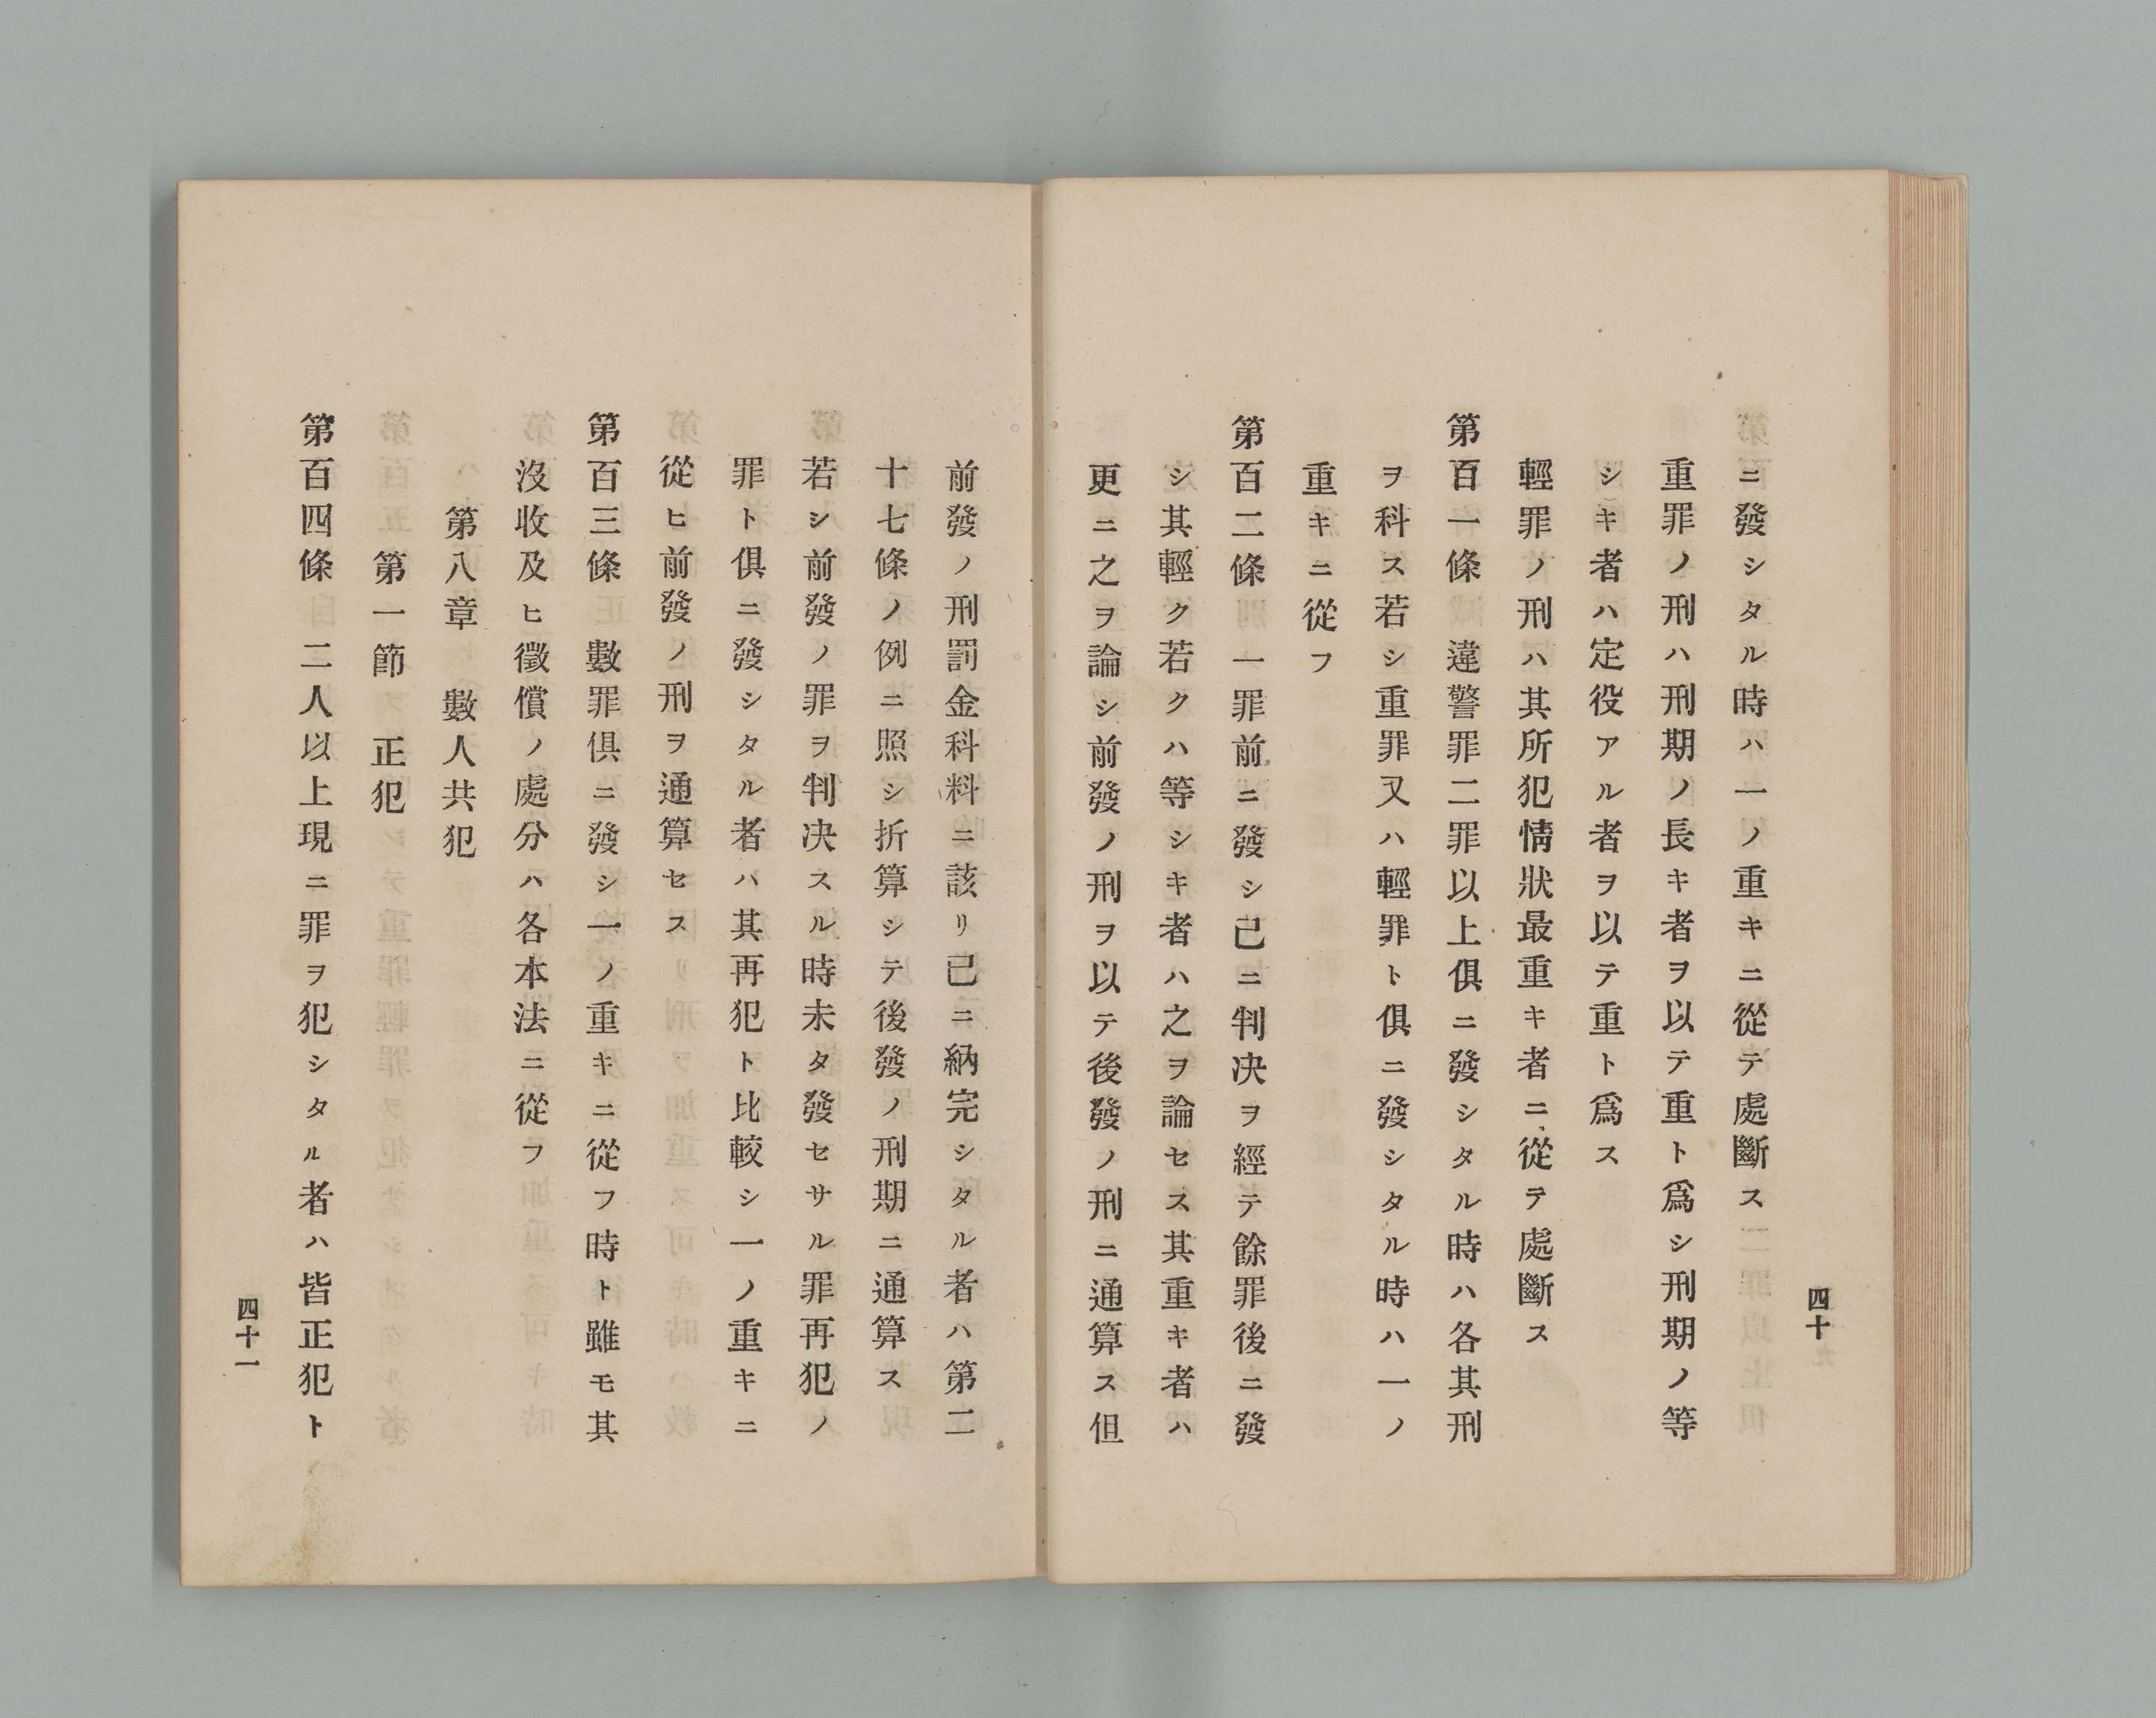 四十
ニ發シタル時ハ一ノ重キニ從テ處斷ス
重罪ノ刑ハ刑期ノ長キ者ヲ以テ重ト爲シ刑期ノ等
シキ者ハ定役アル者ヲ以テ重ト爲ス
輕罪ノ刑ハ其所犯情狀最重キ者ニ從テ處斷ス
第百一條 違警罪二罪以上俱ニ發シタル時ハ各其刑
ヲ科ス若シ重罪又ハ輕罪ト俱ニ發シタル時ハ一ノ
重キニ從フ
第百二條 一罪前ニ發シ已ニ判决ヲ經テ餘罪後ニ發
シ其輕ク若クハ等シキ者ハ之ヲ論セス其重キ者ハ
更ニ之ヲ論シ前發ノ刑ヲ以テ後發ノ刑ニ通算ス但
前發ノ刑罰金科料ニ該リ已ニ納完シタル者ハ第二
十七條ノ例ニ照シ折算シテ後發ノ刑期ニ通算ス
若シ前發ノ罪ヲ判决スル時未タ發セサル罪再犯ノ
罪ト俱ニ發シタル者ハ其再犯ト比較シ一ノ重キニ
從ヒ前發ノ刑ヲ通算セス
第百三條 數罪俱ニ發シ一ノ重キニ從フ時ト雖モ其
沒收及ヒ徵償ノ處分ハ各本法ニ從フ
第八章 數人共犯
第一節 正犯
第百四條 二人以上現ニ罪ヲ犯シタル者ハ皆正犯ト
四十一